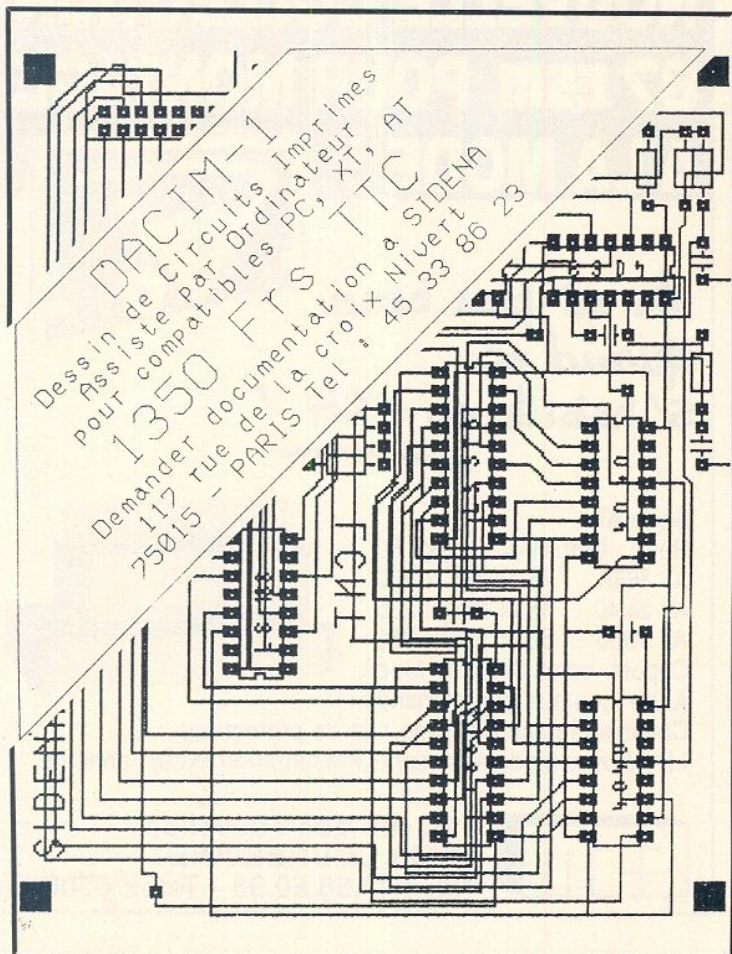 DACIM-1
Dessin de Circuits Imprimes
Assiste Par Ordinateur
pour compatibles PC, XT, AT
1350 Frs TTC
Demander documentation a SIDENA
117 rue de la croix Nivert
75015 - PARIS Tel : 45 33 86 23